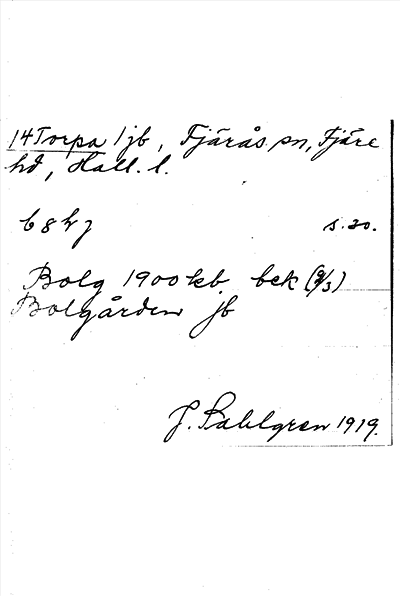 14 Torpa 1 jb, Fjärås sn, Fjäre
hd, Hall. l.
s. 30.
Bolg 1900 kb. bek (9/3)
Bolgården jb
J. Sahlgren 1919.